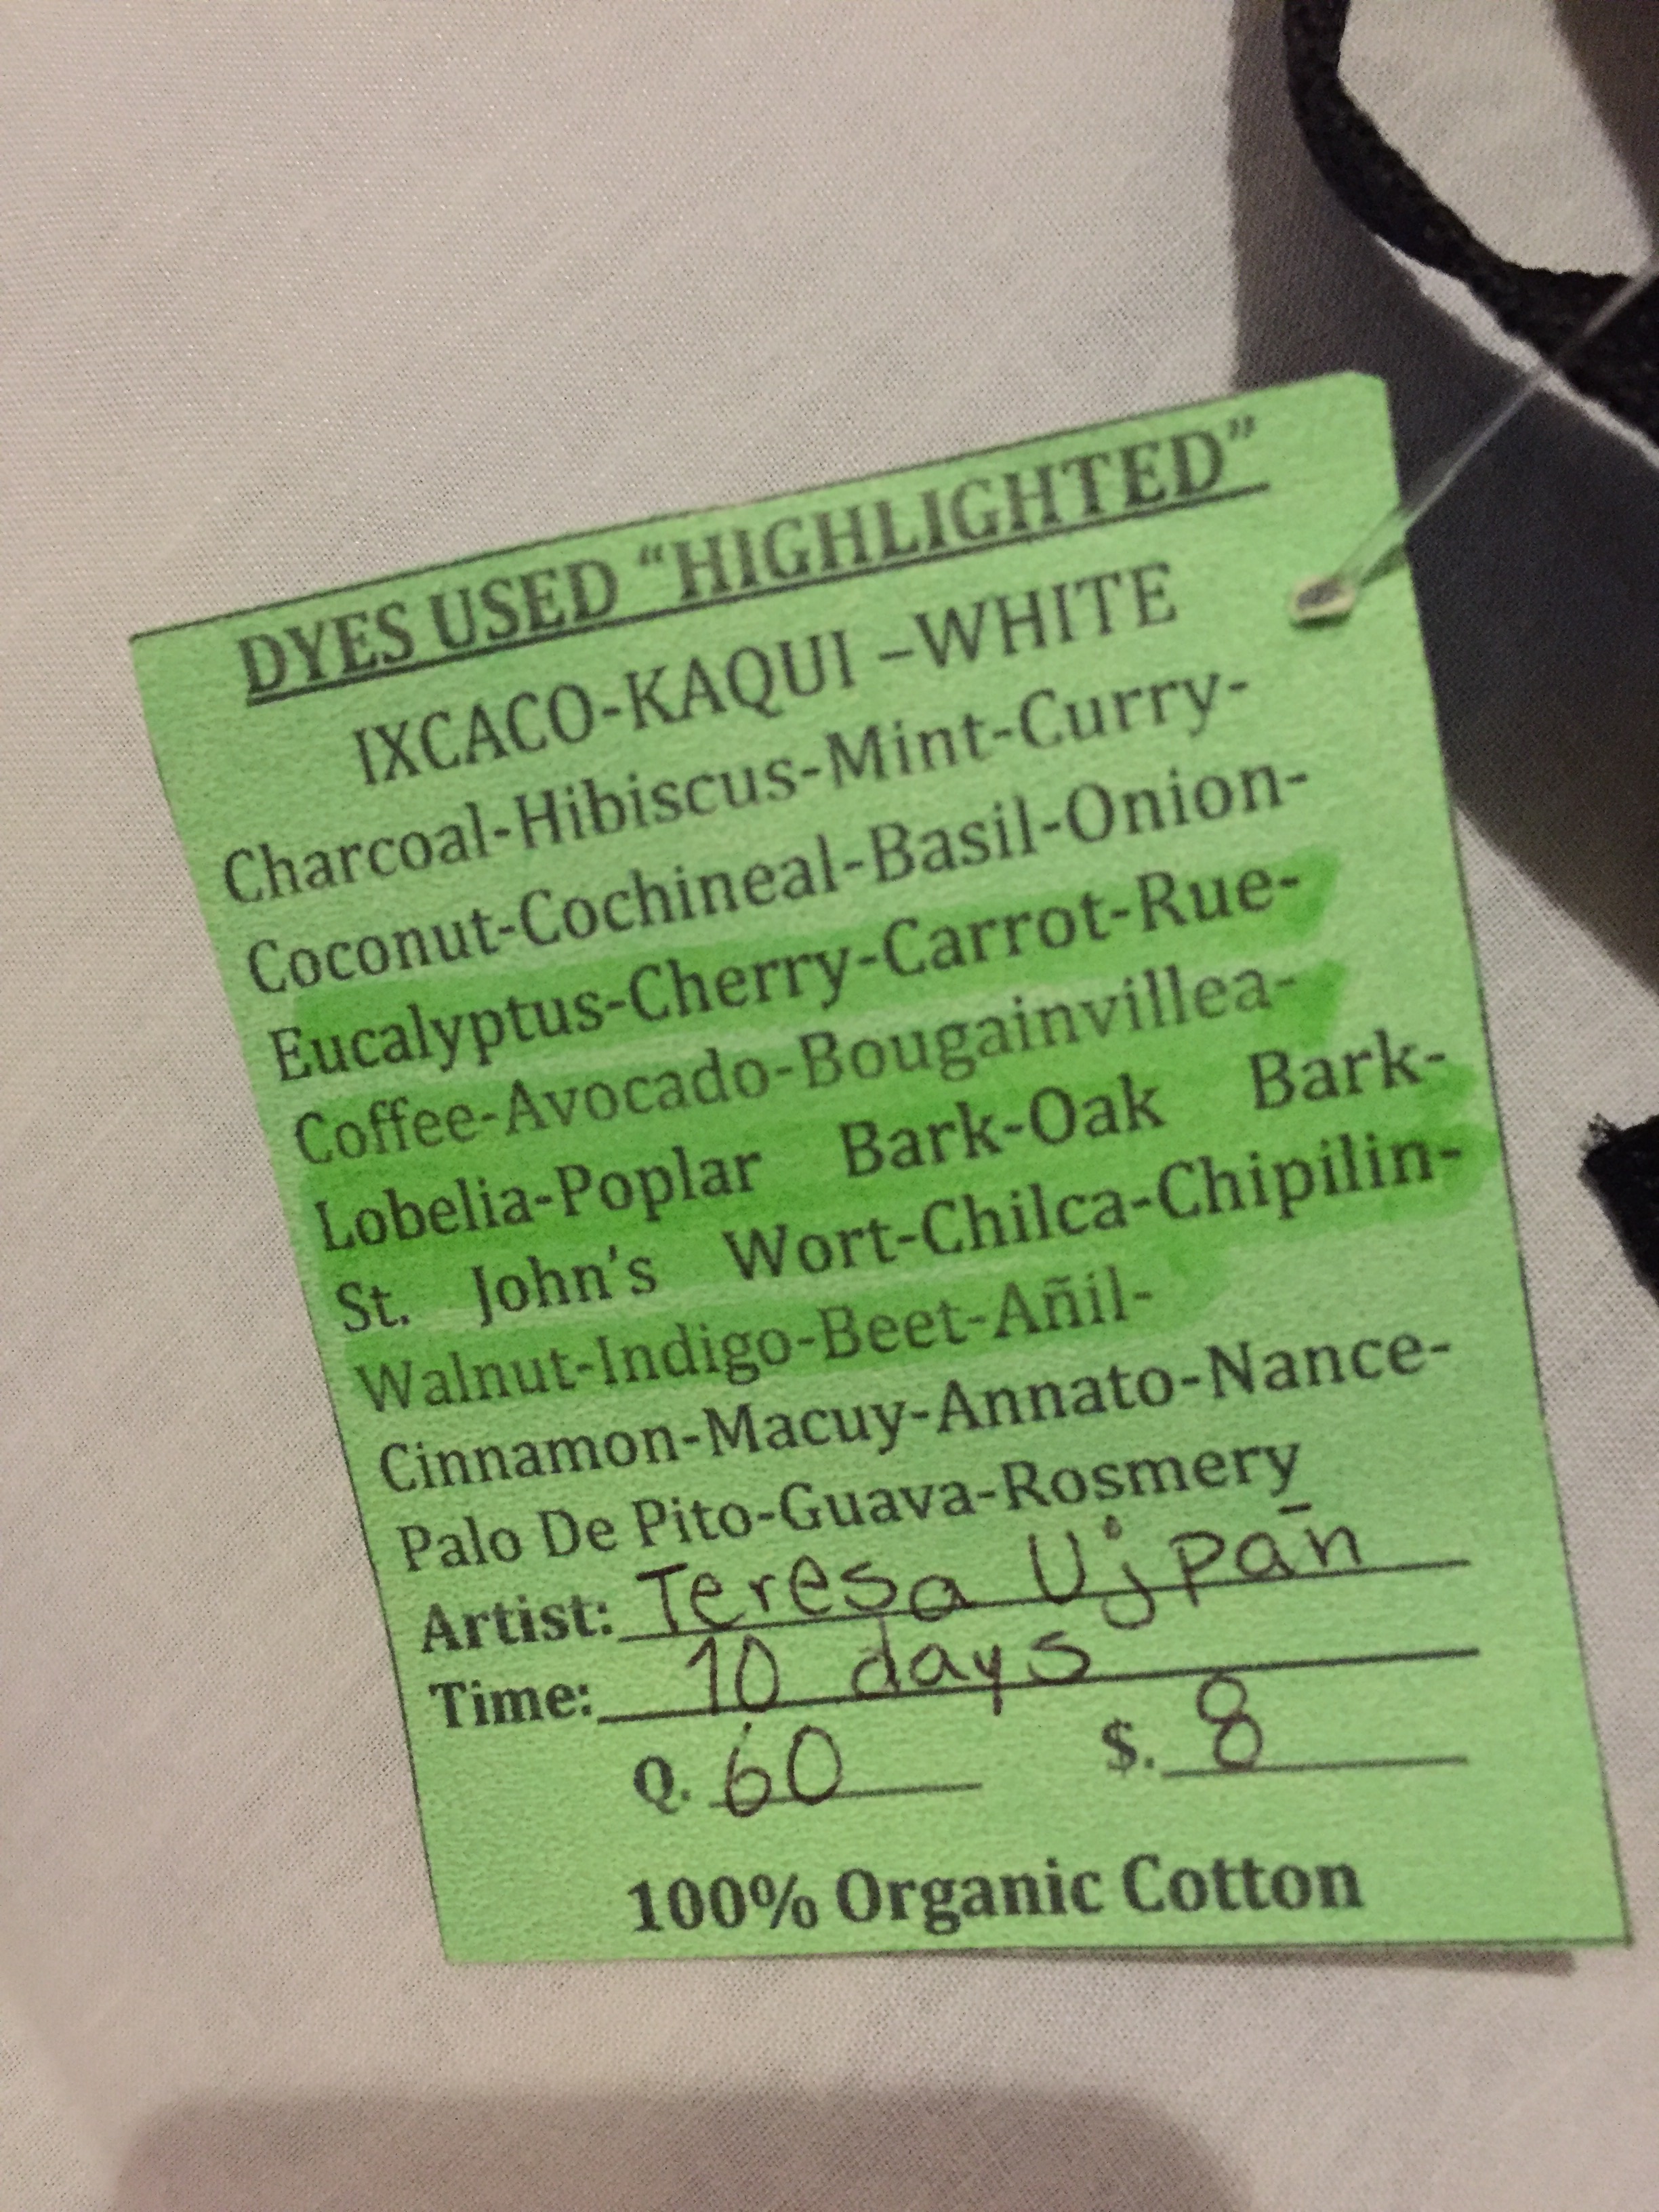 DYES USED “HIGHLIGHTED”
IXCACO-KAQUI –WHITE
Charcoal-Hibiscus-Mint-Curry-
Coconut-Cochineal-Basil-Onion-
Eucalyptus-Cherry-Carrot-Rue-
Coffee-Avocado-Bougainvillea-
Lobelia-Poplar Bark-Oak Bark-
St. John's Wort-Chilca-Chipilin-
Walnut-Indigo-Beet-Añil-
Cinnamon-Macuy-Annato-Nance-
Palo De Pito-Guava-Rosmery
Artist: Teresa Ujpan
Time: 10 days
Q. 60 $. 8
100% Organic Cotton